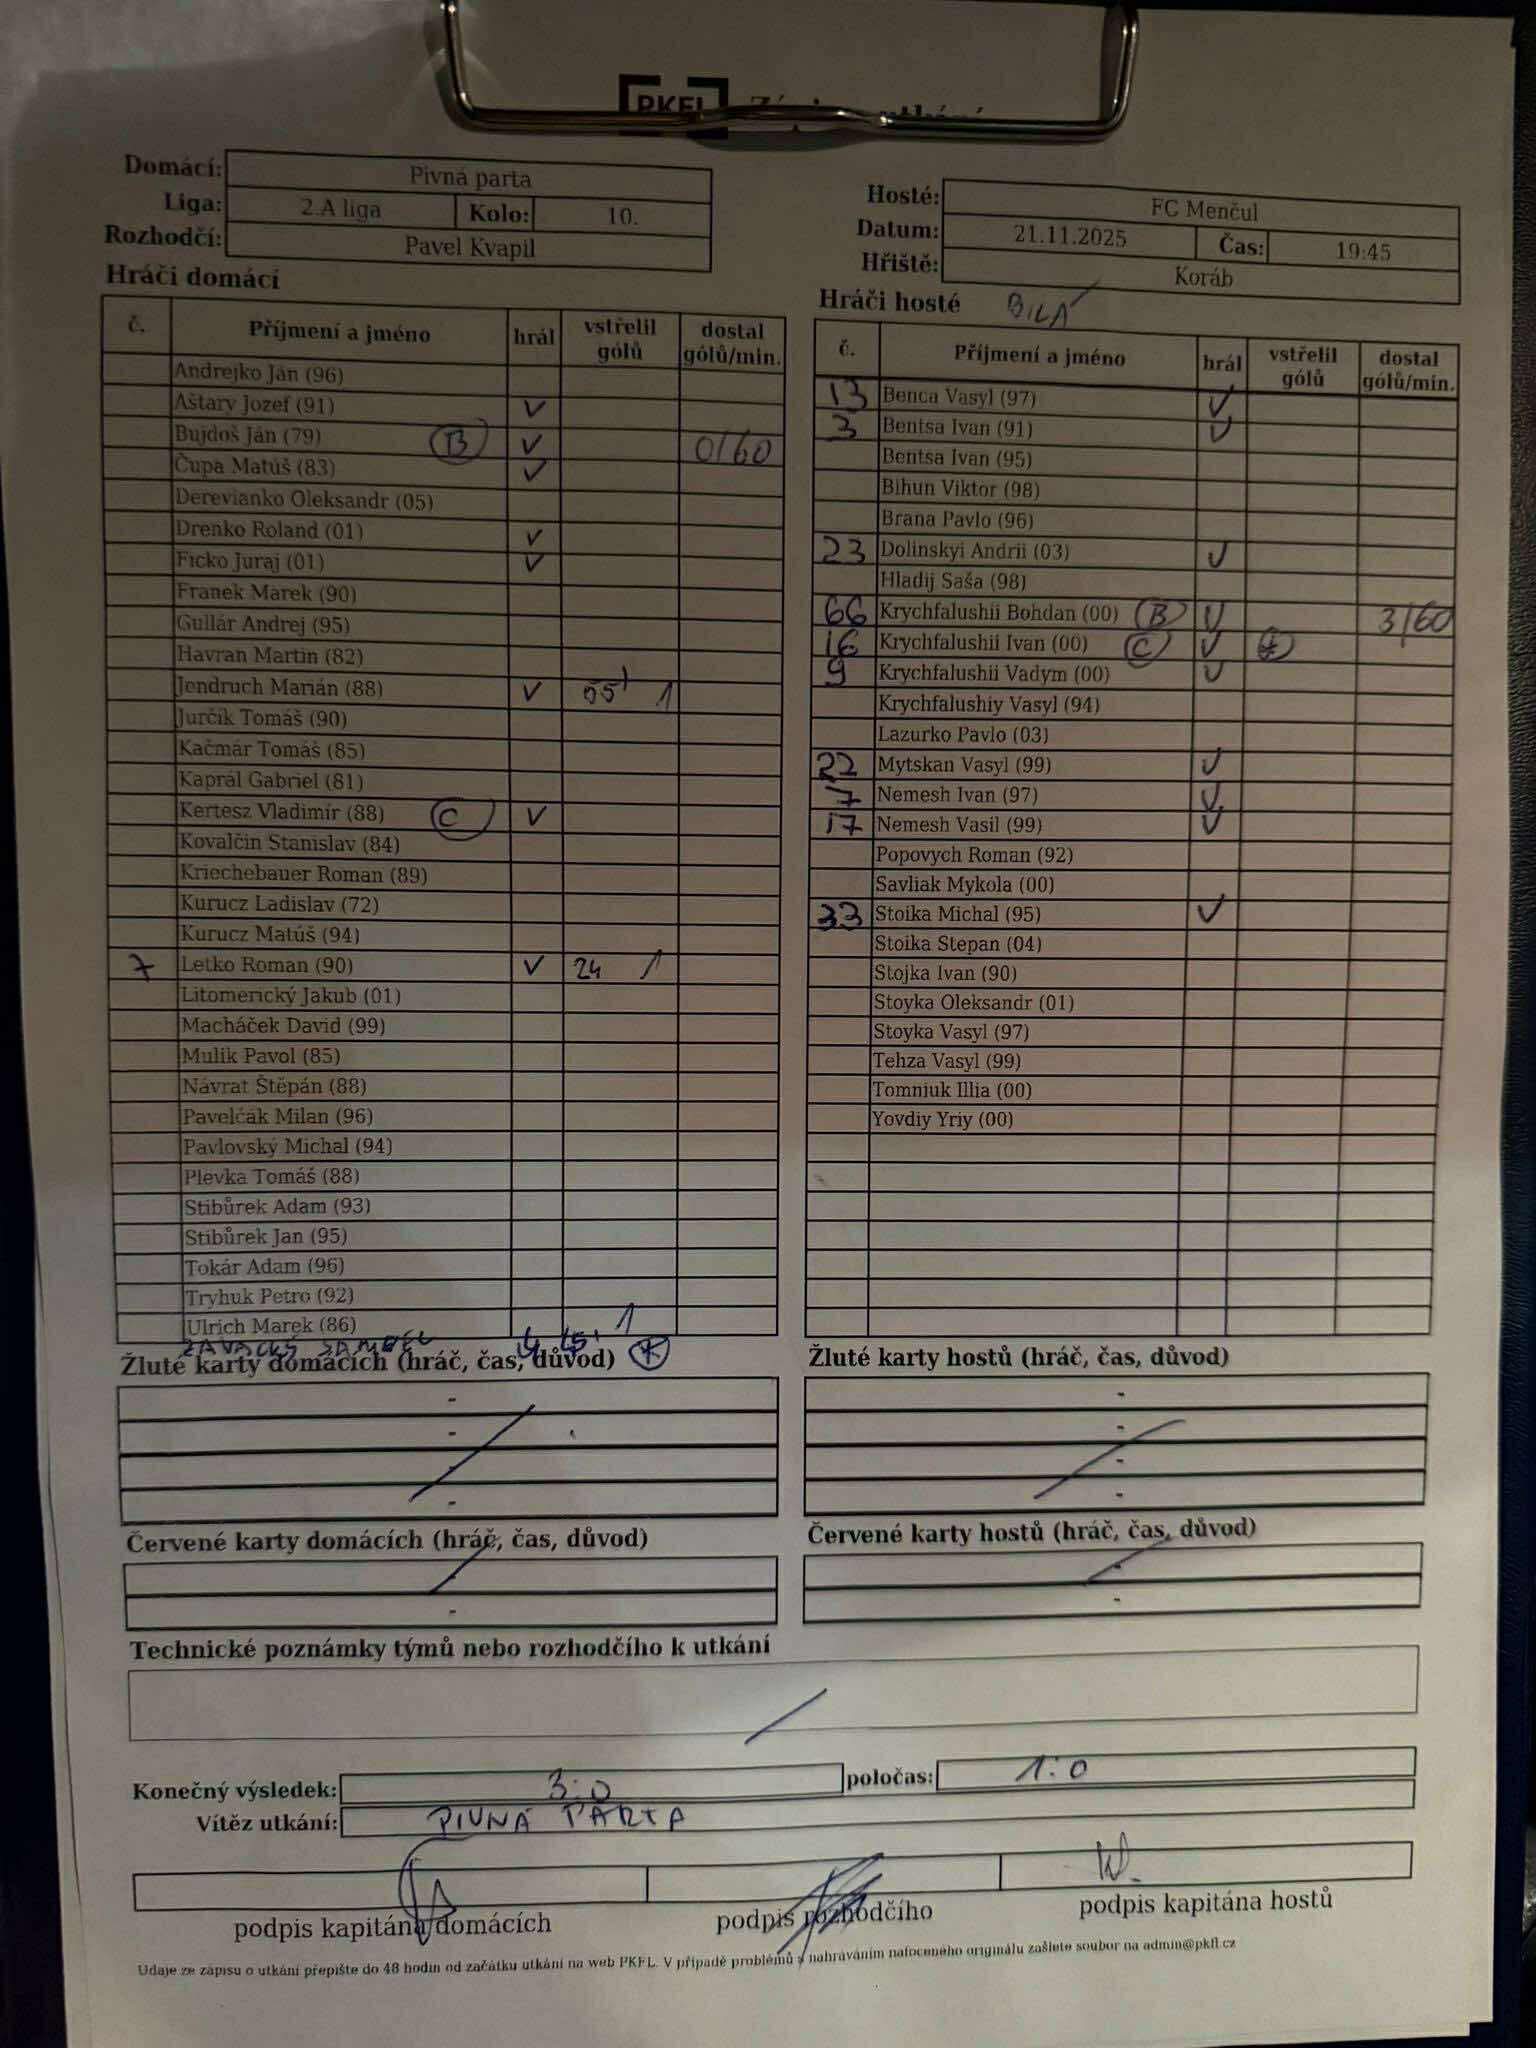 PKFL Zápis o utkání
Domácí: Pivná parta
Liga: 2.A liga Kolo: 10.
Rozhodčí: Pavel Kvapil
Hosté: FC Menčul
Datum: 21.11.2025 Čas: 19:45
Hřiště: Koráb
Hráči domácí
č. Příjmení a jméno hrál vstřelil gólů dostal gólů/min.
Andrejko Ján (96)
Aštary Jozef (91) ✓
Bujdoš Ján (79) B ✓ 0/60
Čupa Matúš (83) ✓
Derevianko Oleksandr (05)
Drenko Roland (01) ✓
Ficko Juraj (01) ✓
Franek Marek (90)
Gullár Andrej (95)
Havran Martin (82)
Jendruch Marián (88) ✓ 55' 1
Jurčík Tomáš (90)
Kačmár Tomáš (85)
Kaprál Gabriel (81)
Kertesz Vladimír (88) C ✓
Kovalčin Stanislav (84)
Kriechebauer Roman (89)
Kurucz Ladislav (72)
Kurucz Matúš (94)
7 Letko Roman (90) ✓ 24 1
Litomerický Jakub (01)
Macháček David (99)
Mulik Pavol (85)
Návrat Štěpán (88)
Pavelčák Milan (96)
Pavlovský Michal (94)
Plevka Tomáš (88)
Stibůrek Adam (93)
Stibůrek Jan (95)
Tokár Adam (96)
Tryhuk Petro (92)
Ulrich Marek (86)
1
Hráči hosté BÍLÁ
č. Příjmení a jméno hrál vstřelil gólů dostal gólů/min.
13 Benca Vasyl (97) ✓
3 Bentsa Ivan (91) ✓
Bentsa Ivan (95)
Bihun Viktor (98)
Brana Pavlo (96)
23 Dolinskyi Andrii (03) ✓
Hladij Saša (98)
66 Krychfalushii Bohdan (00) B ✓ 3/60
16 Krychfalushii Ivan (00) C ✓
9 Krychfalushii Vadym (00) ✓
Krychfalushiy Vasyl (94)
Lazurko Pavlo (03)
22 Mytskan Vasyl (99) ✓
7 Nemesh Ivan (97) ✓
17 Nemesh Vasil (99) ✓
Popovych Roman (92)
Savliak Mykola (00)
33 Stoika Michal (95) ✓
Stoika Stepan (04)
Stojka Ivan (90)
Stoyka Oleksandr (01)
Stoyka Vasyl (97)
Tehza Vasyl (99)
Tomniuk Illia (00)
Yovdiy Yriy (00)
Žluté karty domácích (hráč, čas, důvod)
-
-
-
-
Žluté karty hostů (hráč, čas, důvod)
-
-
-
Červené karty domácích (hráč, čas, důvod)
-
-
Červené karty hostů (hráč, čas, důvod)
-
-
Technické poznámky týmů nebo rozhodčího k utkání
Konečný výsledek: 3:0 poločas: 1:0
Vítěz utkání: PIVNÁ PARTA
podpis kapitána domácích podpis rozhodčího podpis kapitána hostů
Údaje ze zápisu o utkání přepište do 48 hodin od začátku utkání na web PKFL. V případě problémů s nahráváním nafoceného originálu zašlete soubor na admin@pkfl.cz